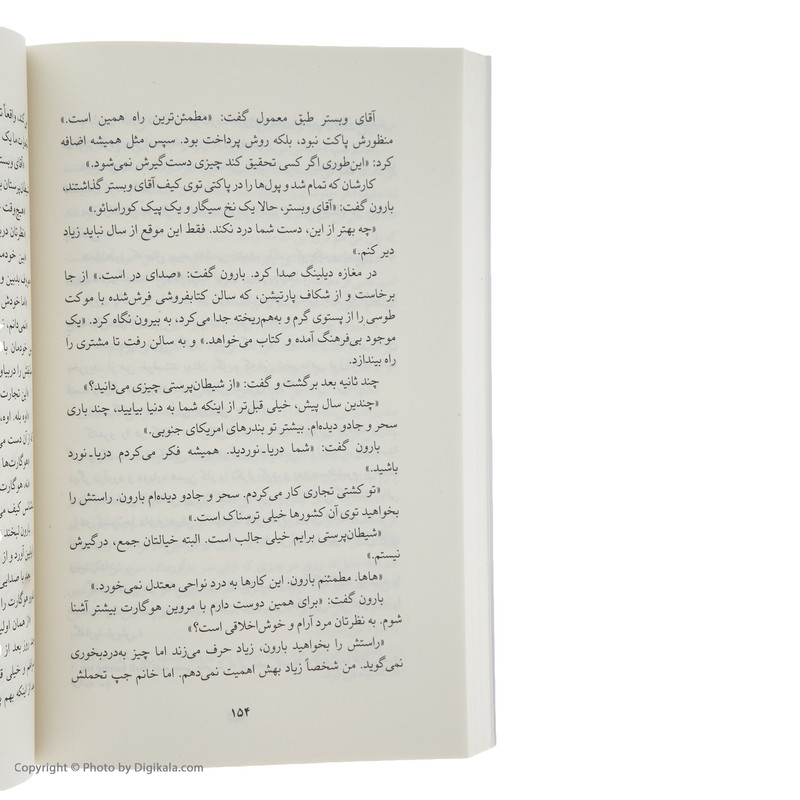 آقای وبستر طبق معمول گفت: «مطمئن‌ترین راه همین است.»
منظورش پاکت نبود، بلکه روش پرداخت بود. سپس مثل همیشه اضافه
کرد: «این‌طوری اگر کسی تحقیق کند چیزی دست‌گیرش نمی‌شود.»
کارشان که تمام شد و پول‌ها را در پاکتی توی کیف آقای وبستر گذاشتند،
بارون گفت: «آقای وبستر، حالا یک نخ سیگار و یک پیک کوراسائو.»
«چه بهتر از این، دست شما درد نکند. فقط این موقع از سال نباید زیاد
دیر کنم.»
در مغازه دیلینگ صدا کرد. بارون گفت: «صدای در است.» از جا
برخاست و از شکاف پارتیشن، که سالن کتابفروشی فرش‌شده با موکت
طوسی را از پستوی گرم و به‌هم‌ریخته جدا می‌کرد، به بیرون نگاه کرد. «یک
موجود بی‌فرهنگ آمده و کتاب می‌خواهد.» و به سالن رفت تا مشتری را
راه بیندازد.
چند ثانیه بعد برگشت و گفت: «از شیطان‌پرستی چیزی می‌دانید؟»
«چندین سال پیش، خیلی قبل‌تر از اینکه شما به دنیا بیایید، چند باری
سحر و جادو دیده‌ام. بیشتر تو بندرهای امریکای جنوبی.»
بارون گفت: «شما دریا‌ـ‌نوردید. همیشه فکر می‌کردم دریا‌ـ‌نورد
باشید.»
«تو کشتی تجاری کار می‌کردم. سحر و جادو دیده‌ام بارون. راستش را
بخواهید توی آن کشورها خیلی ترسناک است.»
«شیطان‌پرستی برایم خیلی جالب است. البته خیالتان جمع، درگیرش
نیستم.»
«هاها. مطمئنم بارون. این کارها به درد نواحی معتدل نمی‌خورد.»
بارون گفت: «برای همین دوست دارم با مروین هوگارت بیشتر آشنا
شوم. به نظرتان مرد آرام و خوش‌اخلاقی است؟»
«راستش را بخواهید بارون، زیاد حرف می‌زند اما چیز به‌دردبخوری
نمی‌گوید. من شخصاً زیاد بهش اهمیت نمی‌دهم. اما خانم جپ تحملش
۱۵۴
Copyright © Photo by Digikala.com